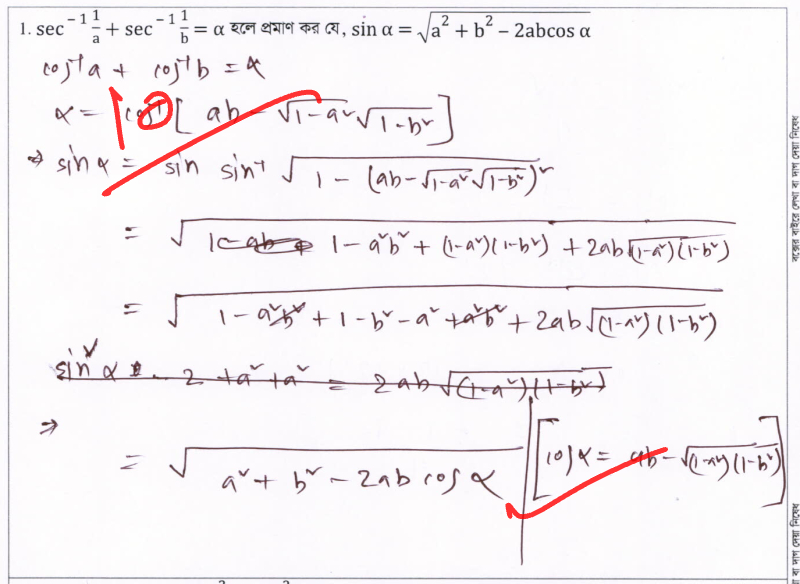 1. sec⁻¹ 1/a + sec⁻¹ 1/b = α হলে প্রমাণ কর যে, sin α = √(a² + b² − 2abcos α)
cos⁻¹a + cos⁻¹b = α
α = cos⁻¹[ab − √(1−a²)√(1−b²)]
⇒ sin α = sin sin⁻¹ √(1 − (ab − √(1−a²)√(1−b²))²)
= √(1 − a²b² + (1−a²)(1−b²) + 2ab√((1−a²)(1−b²)))
= √(1 − a²b² + 1 − b² − a² + a²b² + 2ab√((1−a²)(1−b²)))
⇒
= √(a² + b² − 2ab cos α) [cos α = ab − √((1−a²)(1−b²))]
বক্সের বাইরে লেখা বা দাগ দেয়া নিষেধ
বা দাগ দেয়া নিষেধ